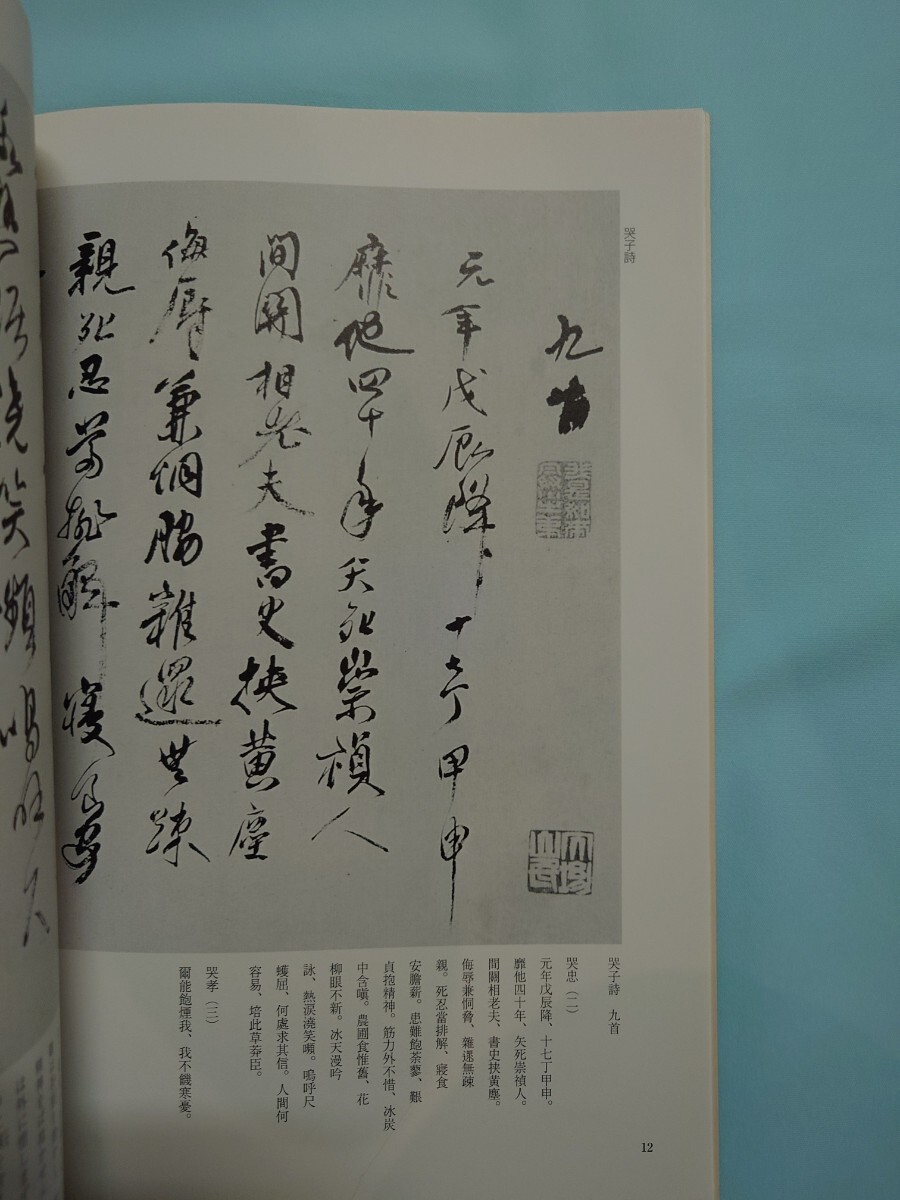 哭子詩
九首
元年戊辰降十七丁甲申
靡他四十年矢死崇禎人
間關相老夫書史挾黄塵
侮辱兼恫脅雜遝無疎
親死忍當排解寝食
哭子詩　九首
哭忠（二）
元年戊辰降、十七丁甲申。
靡他四十年、矢死崇禎人。
間關相老夫、書史挾黄塵。
侮辱兼恫脅、雜遝無疎
親。死忍當排解、寢食
安膽薪。患難飽荼蓼、艱
貞抱精神。筋力外不惜、冰炭
中含嗔。農圃食惟舊、花
柳眼不新。冰天漫吟
詠、熱淚澆笑嚬。嗚呼尺
蠖屈、何處求其信。人間何
容易、培此草莽臣。
哭孝（三）
爾能飽煙我、我不饑寒憂。
12